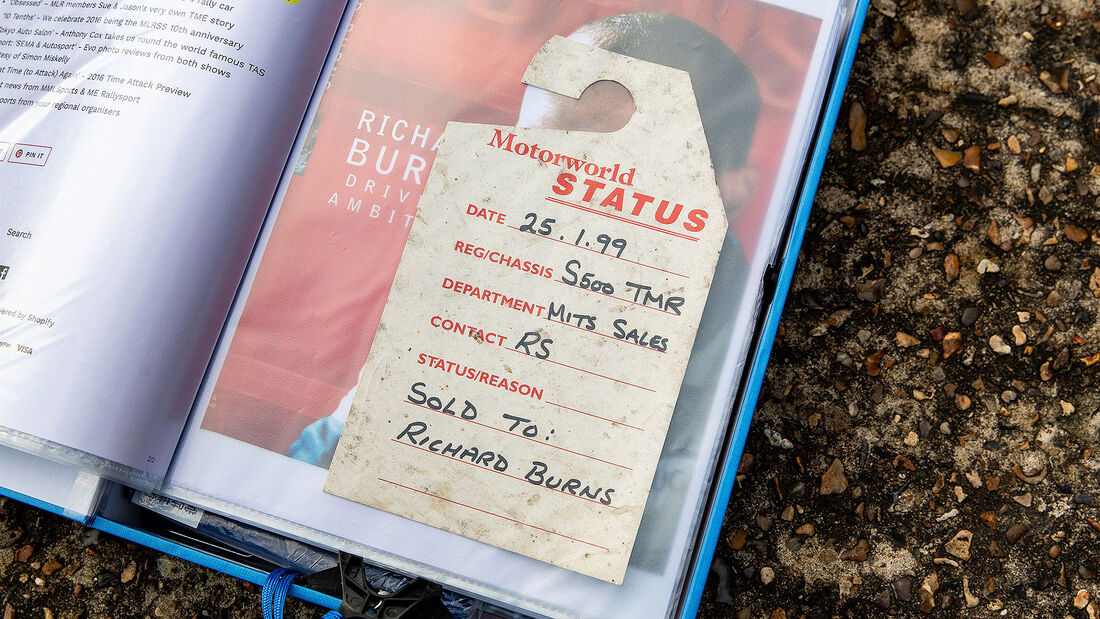 rally car
'Obsessed' – MLR members Sue & Jason's very own TME story
'10 Tenths' – We celebrate 2016 being the MLRSS 10th anniversary
Tokyo Auto Salon' – Anthony Cox takes us round the world famous TAS
port: SEMA & Autosport' – Evo photo reviews from both shows
tesy of Simon Miskelly
at Time (to Attack) Again' – 2016 Time Attack Preview
t news from MMLSports & ME Rallysport
ports from your regional organisers
PIN IT
Search
ered by Shopify
VISA
2/2
RICHA
BUR
DRIV
AMBIT
Motorworld
STATUS
DATE 25.1.99
REG/CHASSIS S500 TMR
DEPARTMENT MITS SALES
CONTACT RS
STATUS/REASON
SOLD TO:
RICHARD BURNS